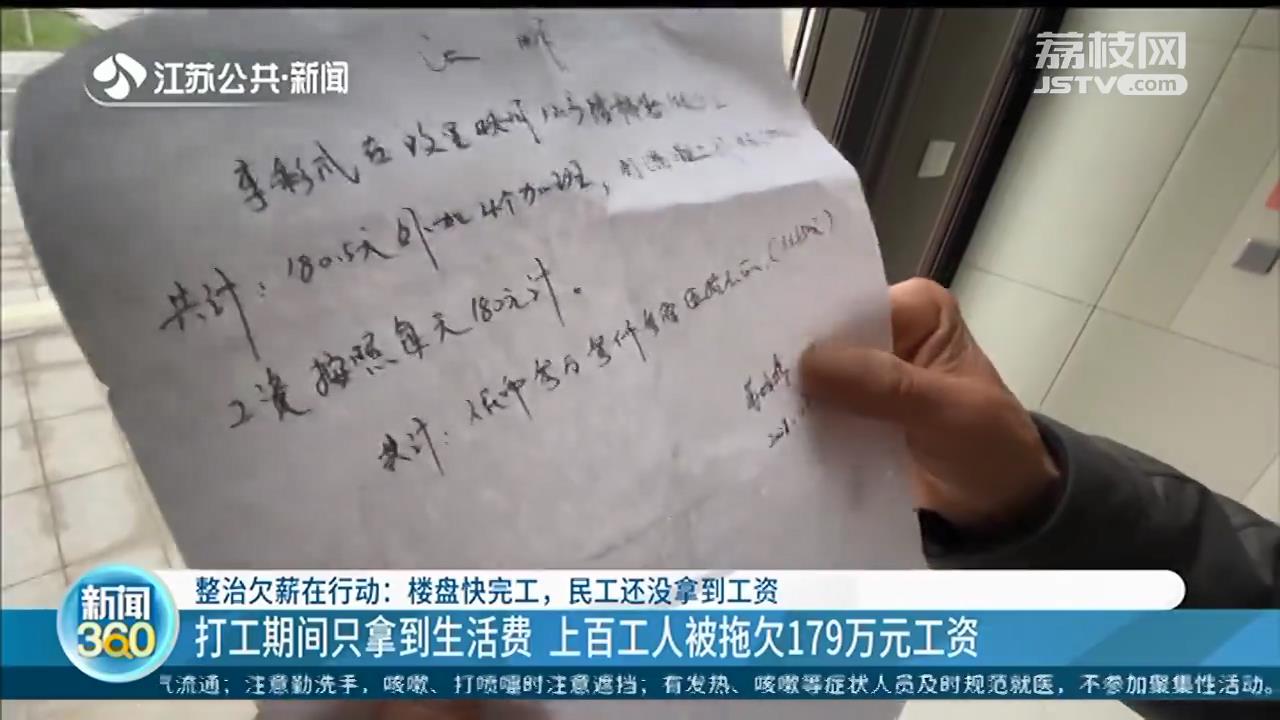 江苏公共·新闻
荔枝网
JSTV.com
证明
李彩武在
共计：180.5元外加4个加班，
工资按照每天180元计。
共计：人民币
新闻
360
整治欠薪在行动：楼盘快完工，民工还没拿到工资
打工期间只拿到生活费 上百工人被拖欠179万元工资
气流通；注意勤洗手，咳嗽、打喷嚏时注意遮挡；有发热、咳嗽等症状人员及时规范就医，不参加聚集性活动。